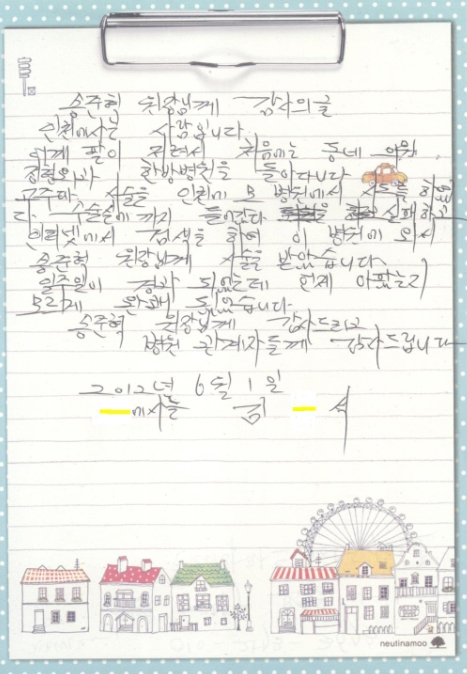 송준혁 원장님께 감사의글
인천에사는 사람입니다.
어깨 팔이 저려서 처음에는 동네
정형외과 한방병원을 돌아다니다
인천에 모 병원에서 시술을
다. 수술실에까지 들어갔다
인터넷에서 검색을 하여 이 병원에 오셔
송준혁 원장님께 시술을 받았습니다.
일주일이 경과 되었는데 언제 아팠는지
모르게 완쾌 되었습니다.
송준혁 원장님께 감사드리고
병원 관계자들께 감사드립니다
2012년 6월 1일
에사는
neutinamoo